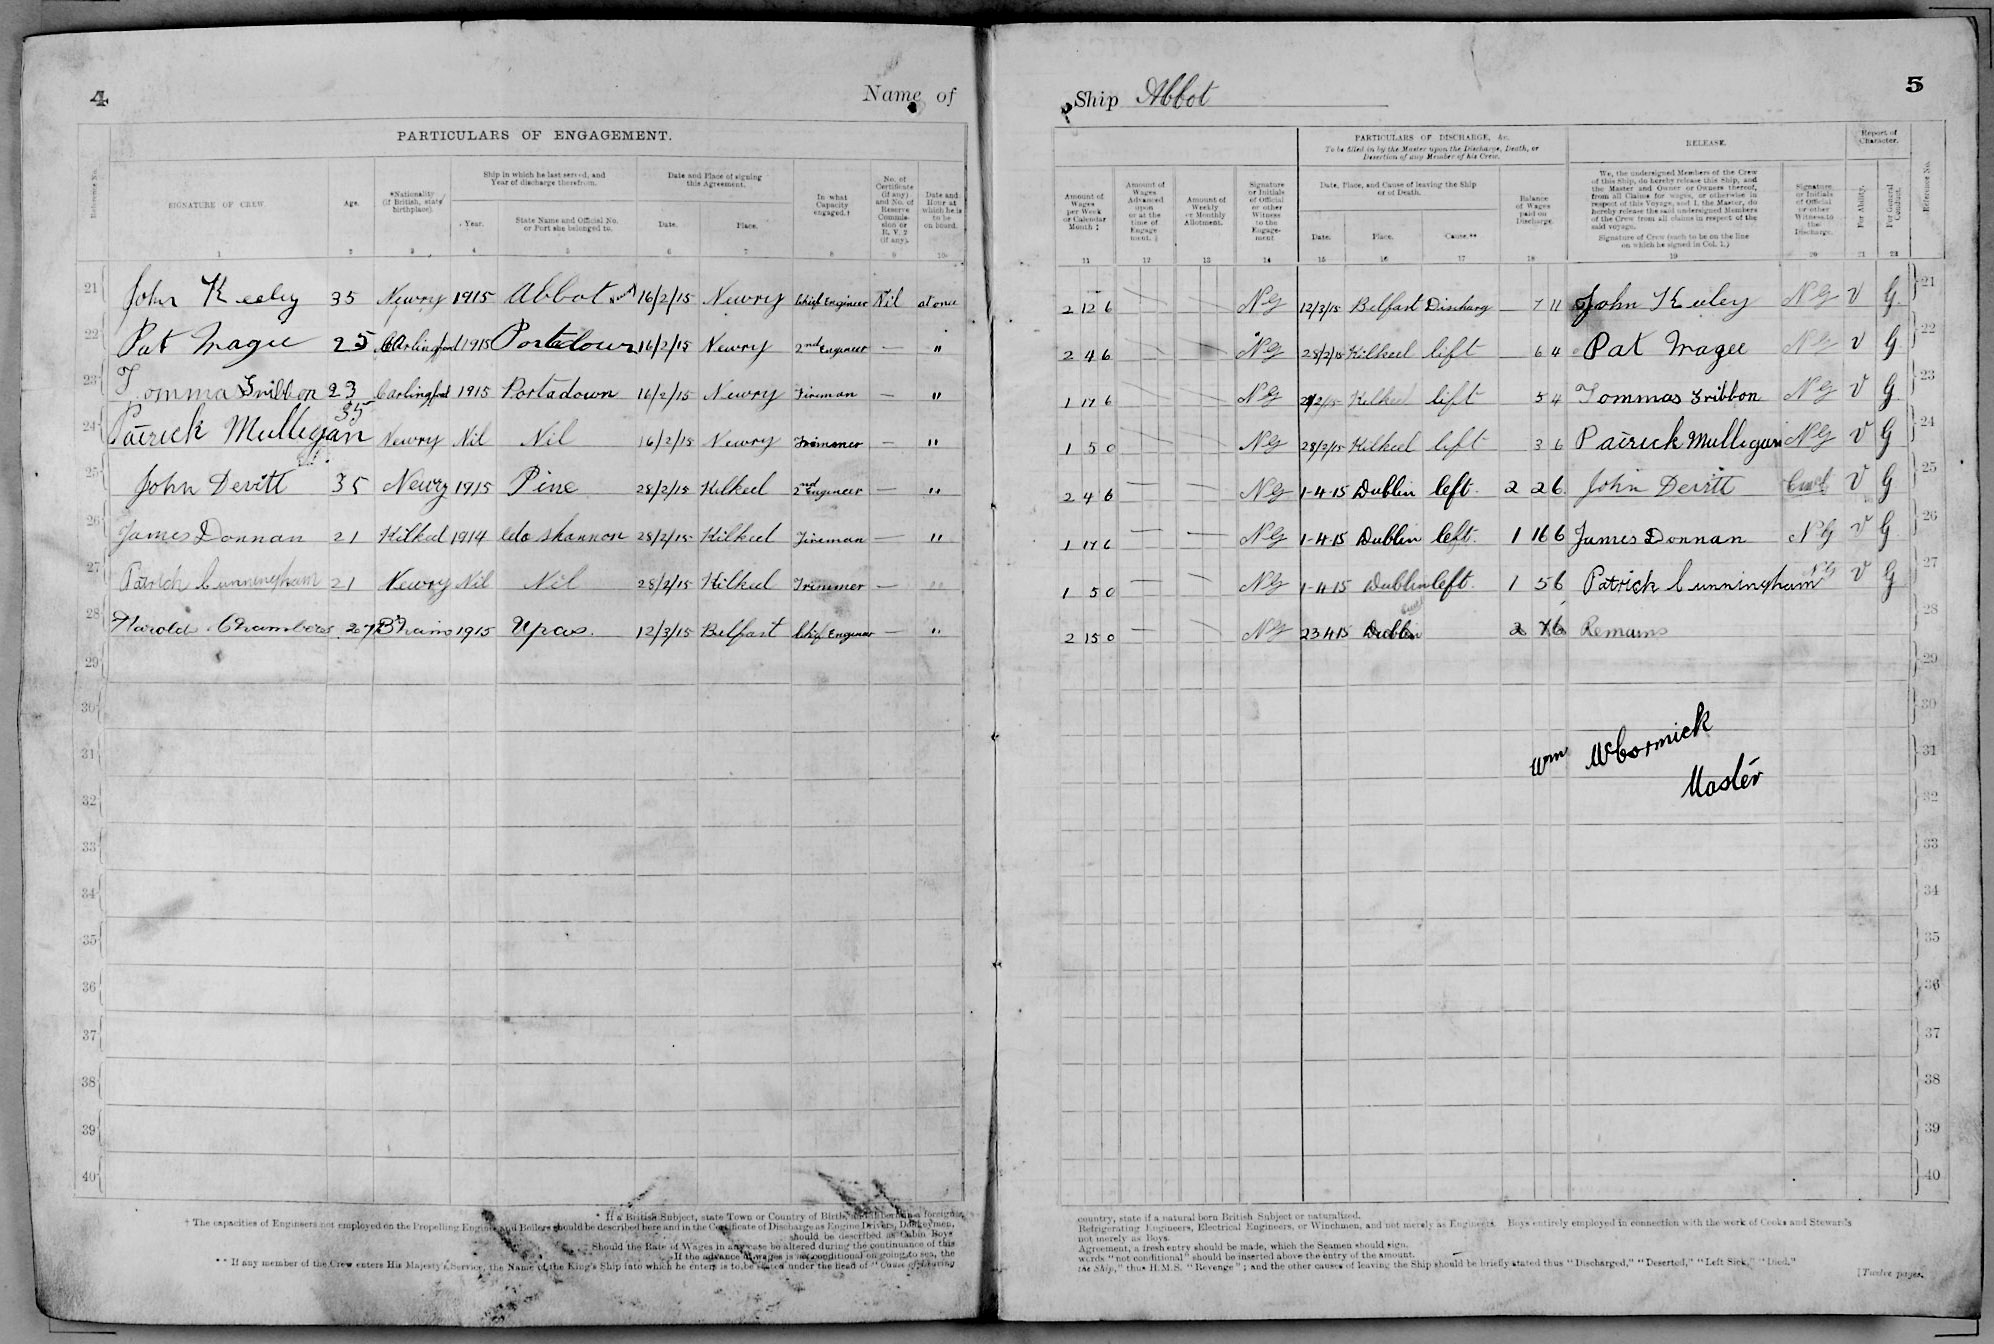 4
Name of
PARTICULARS OF ENGAGEMENT.
Reference No.
SIGNATURE OF CREW.
Age.
*Nationality (if British, state birthplace).
Ship in which he last served, and Year of discharge therefrom.
Year.
State Name and Official No. or Port she belonged to.
Date and Place of signing this Agreement.
Date.
Place.
In what Capacity engaged.†
No. of Certificate (if any) and No. of Reserve Commission or R.V. 2 (if any).
Date and Hour at which he is to be on board.
1 2 3 4 5 6 7 8 9 10
21 John Keeley 35 Newry 1915 Abbot Newry 16/2/15 Newry Chief Engineer Nil at once
22 Pat Magee 25 Carlingford 1915 Portadown 16/2/15 Newry 2nd Engineer — "
23 Tommas Gribbon 23 Carlingford 1915 Portadown 16/2/15 Newry Fireman — "
24 Patrick Mulligan 35 Newry Nil Nil 16/2/15 Newry Trimmer — "
25 John Devitt 35 Newry 1915 Pine 28/2/15 Kilkeel 2nd Engineer — "
26 James Donnan 21 Kilkeel 1914 Shannon 28/2/15 Kilkeel Fireman — "
27 Patrick Cunningham 21 Newry Nil Nil 28/2/15 Kilkeel Trimmer — "
28 Harold Chambers 27 1915 Upas. 12/3/15 Belfast Chief Engineer — "
29
30
31
32
33
34
35
36
37
38
39
40
* If a British Subject, state Town or Country of Birth, and if born in a foreign
† The capacities of Engineers not employed on the Propelling Engines and Boilers should be described here and in the Certificate of Discharge as Engine Drivers, Donkeymen,
should be described as Cabin Boys
Should the Rate of Wages in any case be altered during the continuance of this
If the advance of wages is not conditional on going to sea, the
** If any member of the Crew enters His Majesty's Service, the Name of the King's Ship into which he enters is to be stated under the head of "Cause of leaving
Ship Abbot
5
Amount of Wages per Week or Calendar Month ‡
Amount of Wages Advanced upon or at the time of Engagement. §
Amount of Weekly or Monthly Allotment.
Signature or Initials of Official or other Witness to the Engagement
PARTICULARS OF DISCHARGE, &c.
To be filled in by the Master upon the Discharge, Death, or Desertion of any Member of his Crew.
Date, Place, and Cause of leaving the Ship or of Death.
Date.
Place.
Cause.**
Balance of Wages paid on Discharge.
RELEASE.
We, the undersigned Members of the Crew of this Ship, do hereby release this Ship, and the Master and Owner or Owners thereof, from all Claims for wages, or otherwise in respect of this Voyage, and I, the Master, do hereby release the said undersigned Members of the Crew from all claims in respect of the said voyage.
Signature of Crew (each to be on the line on which he signed in Col. 1.)
Signature or Initials of Official or other Witness to the Discharge.
Report of Character.
For Ability.
For General Conduct.
Reference No.
11 12 13 14 15 16 17 18 19 20 21 22
2 12 6 NG 12/3/15 Belfast Discharg — 7 11 John Keeley NG V G. 21
2 4 6 NG 28/2/15 Kilkeel left 6 4 Pat Magee NG V G 22
1 17 6 NG 28/2/15 Kilkeel left 5 4 Tommas Gribbon NG V G 23
1 5 0 NG 28/2/15 Kilkeel left 3 6 Patrick Mulligan NG V G 24
2 4 6 NG 1-4-15 Dublin left. 2 2 6. John Devitt V G 25
1 17 6 NG 1-4-15 Dublin left. 1 16 6 James Donnan NG V G 26
1 5 0 NG 1-4-15 Dublin left. 1 5 6 Patrick Cunningham NG V G 27
2 15 0 NG 23 4 15 Dublin Remains 28
29
30
31
32
33
34
35
36
37
38
39
40
Wm McCormick
Master
country, state if a natural born British Subject or naturalized.
Refrigerating Engineers, Electrical Engineers, or Winchmen, and not merely as Engineers. Boys entirely employed in connection with the work of Cooks and Stewards
not merely as Boys.
Agreement, a fresh entry should be made, which the Seamen should sign.
words "not conditional" should be inserted above the entry of the amount.
the Ship," thus H.M.S. "Revenge"; and the other causes of leaving the Ship should be briefly stated thus "Discharged," "Deserted," "Left Sick," "Died."
[Twelve pages.